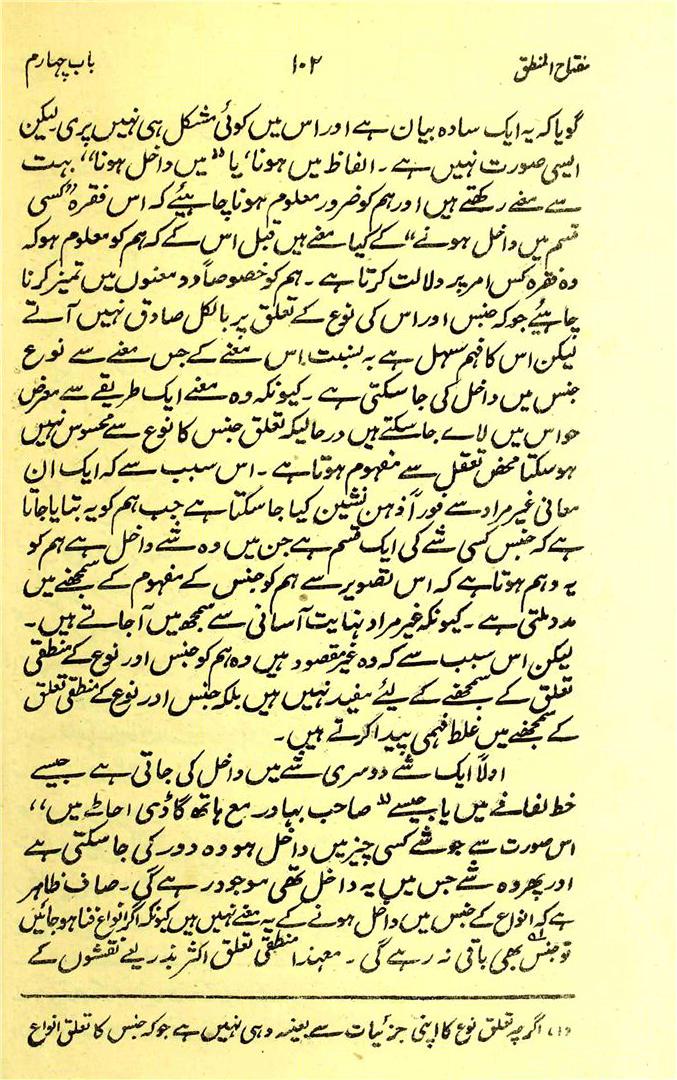 مفتاح المنطق ۱۰۲ باب چہارم
گویا کہ یہ ایک سادہ بیان ہے اور اس میں کوئی مشکل ہی نہیں پری۔ لیکن
ایسی صورت نہیں ہے۔ الفاظ میں ہونا‘ یا ’’میں داخل ہونا‘‘ بہت
سے معنے رکھتے ہیں اور ہم کو ضرور معلوم ہونا چاہیئے کہ اس فقرہ ’’کسی
قسم میں داخل ہونے‘‘ کے کیا معنے ہیں قبل اس کے کہ ہم کو معلوم ہو کہ
وہ فقرہ کس امر پر دلالت کرتا ہے۔ ہم کو خصوصاً دو معنوں میں تمیز کرنا
چاہیئے جو کہ جنس اور اس کی نوع کے تعلق پر بالکل صادق نہیں آتے
لیکن اس کا فہم سہل ہے بہ نسبت اس معنے کے جس معنے سے نوع
جنس میں داخل کی جا سکتی ہے۔ کیونکہ وہ معنے ایک طریقے سے معرض
حواس میں لاے جا سکتے ہیں درحالیکہ تعلق جنس کا نوع سے محسوس نہیں
ہو سکتا محض تعقل سے مفہوم ہوتا ہے۔ اس سبب سے کہ ایک ان
معانی غیر مراد سے فوراً ذہن نشین کیا جا سکتا ہے جب ہم کو یہ بتایا جاتا
ہے کہ جنس کسی شے کی ایک قسم ہے جن میں وہ شے داخل ہے ہم کو
یہ وہم ہوتا ہے کہ اس تصویر سے ہم کو جنس کے مفہوم کے سمجھنے میں
مدد ملتی ہے۔ کیونکہ غیر مراد نہایت آسانی سے سمجھ میں آ جاتے ہیں۔
لیکن اس سبب سے کہ وہ غیر مقصود ہیں وہ ہم کو جنس اور نوع کے منطقی
تعلق کے سمجھنے کے لیئے مفید نہیں ہیں بلکہ جنس اور نوع کے منطقی تعلق
کے سمجھنے میں غلط فہمی پیدا کرتے ہیں۔
اولاً ایک شے دوسری شے میں داخل کی جاتی ہے جیسے
خط لفافے میں یا جیسے ’’صاحب بہادر مع ہاتھ گاڈی احاٹے میں‘‘
اس صورت سے جو شے کسی چیز میں داخل ہو وہ دور کی جا سکتی ہے
اور پھر وہ شے جس میں یہ داخل تھی موجود رہے گی۔ صاف ظاہر
ہے کہ انواع کے جنس میں داخل ہونے کے یہ معنے نہیں ہیں کیونکہ اگر انواع فنا ہو جائیں
تو جنس بھی باقی نہ رہے گی۔ معہذا منطقی تعلق اکثر بذریعے نقشوں کے
(۱) اگرچہ تعلق نوع کا اپنی جزئیات سے بعینہ وہی نہیں ہے جو کہ جنس کا تعلق انواع